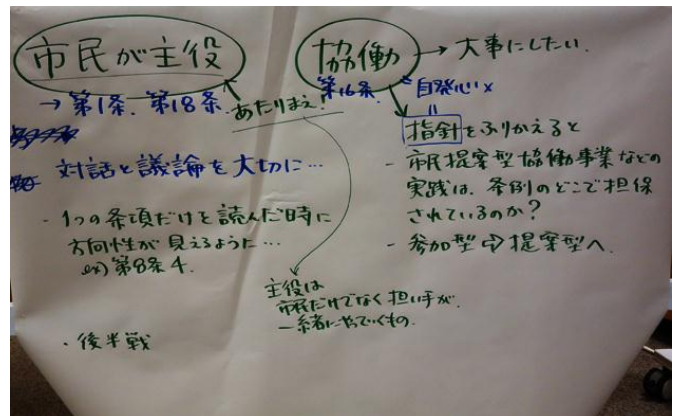 市民が主役
→ 第1条. 第18条.
あたりまえ!
対話と議論を大切に…
・1つの条項だけを読んだ時に
方向性が見えるように…
ex) 第8条4.
・後半戦
主役は
市民だけでなく担い手が.
一緒にやっていくもの.
協働 → 大事にしたい.
第16条.
"自発心"×
指針をふりかえると
- 市民提案型協働事業などの
実践は、条例のどこで担保
されているのか?
- 参加型⇨提案型へ.